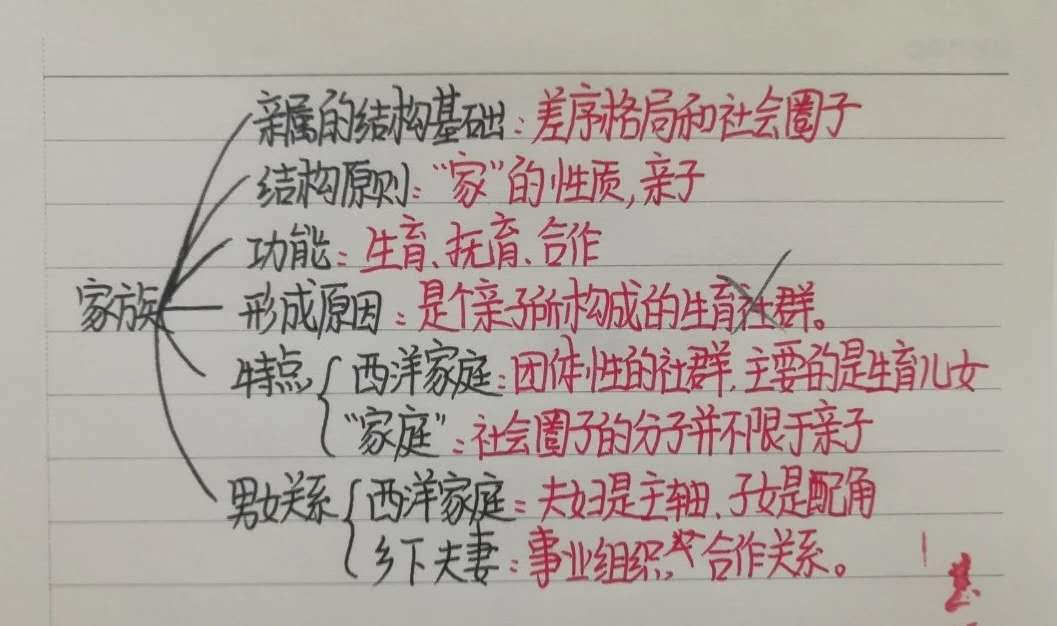 亲属的结构基础：差序格局和社会圈子
结构原则："家"的性质,亲子
功能：生育、抚育、合作
家族
形成原因：是个亲子所构成的生育社群。
特点
西洋家庭：团体性的社群.主要的是生育儿女
"家庭"：社会圈子的分子并不限于亲子
男女关系
西洋家庭：夫妇是主轴、子女是配角
乡下夫妻：事业组织, 合作关系。